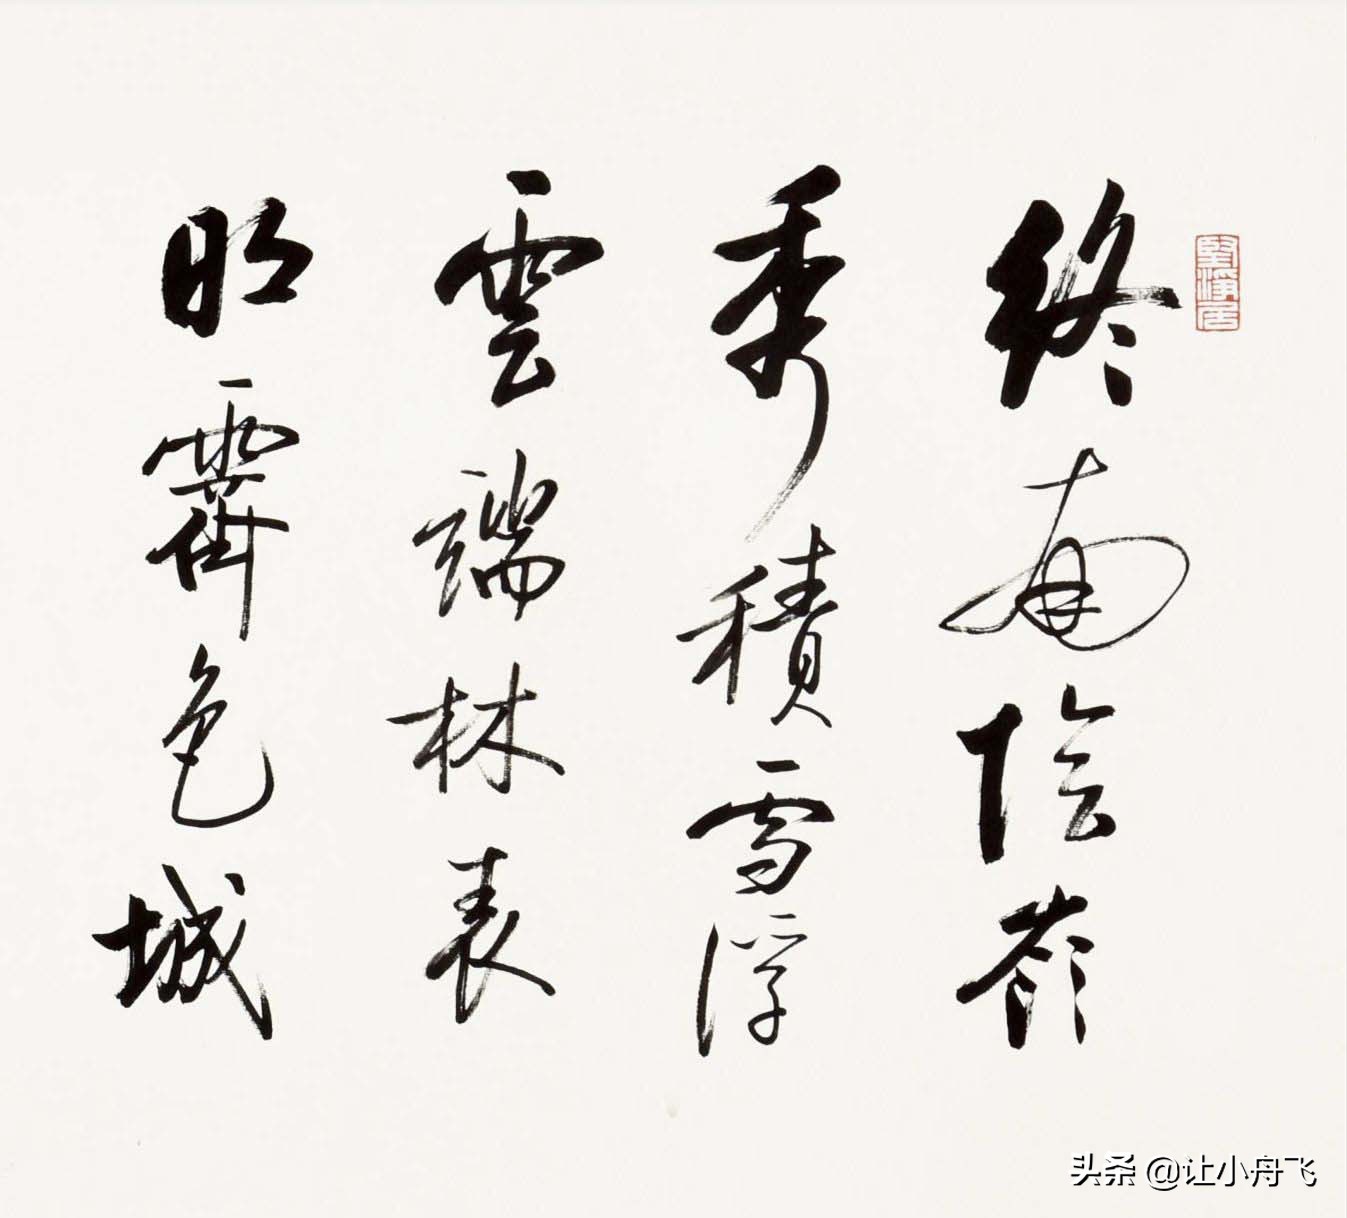 堅淨居
終南陰嶺
秀積雪浮
雲端林表
明霽色城
头条 @让小舟飞